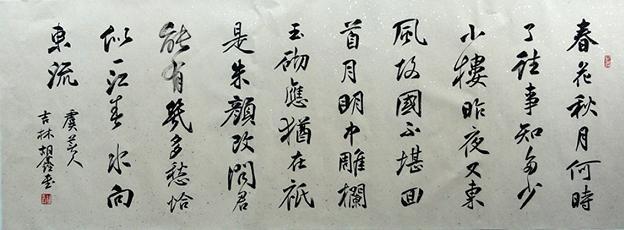 春花秋月何時
了往事知多少
小樓昨夜又東
風故國不堪回
首月明中雕欄
玉砌應猶在祇
是朱顏改問君
能有幾多愁恰
似一江春水向
東流
虞美人
吉林胡鑫